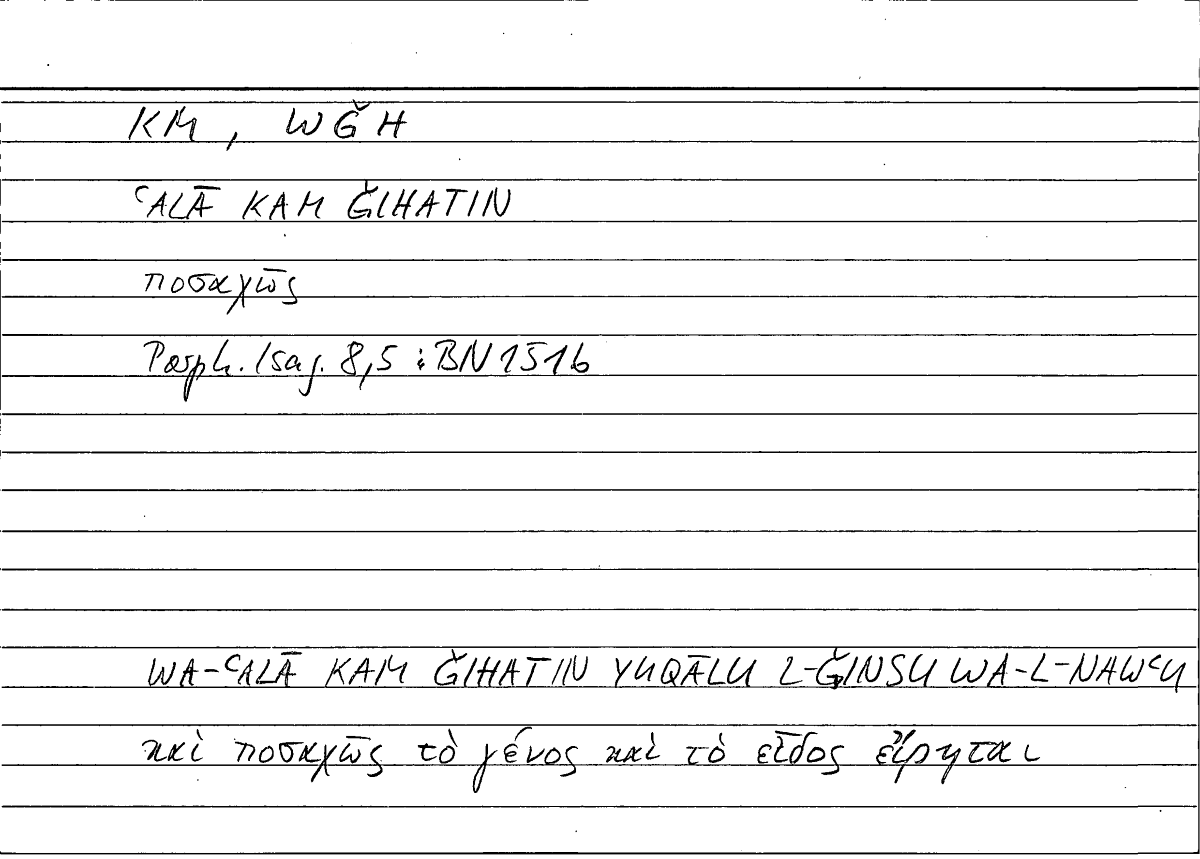 KM, WǦH
ʿALĀ KAM ǦIHATIN
ποσαχῶς
Porph. Isag. 8,5 : BN 1516
WA-ʿALĀ KAM ǦIHATIN YUQĀLU L-ǦINSU WA-L-NAWʿU
καὶ ποσαχῶς τὸ γένος καὶ τὸ εἶδος εἴρηται